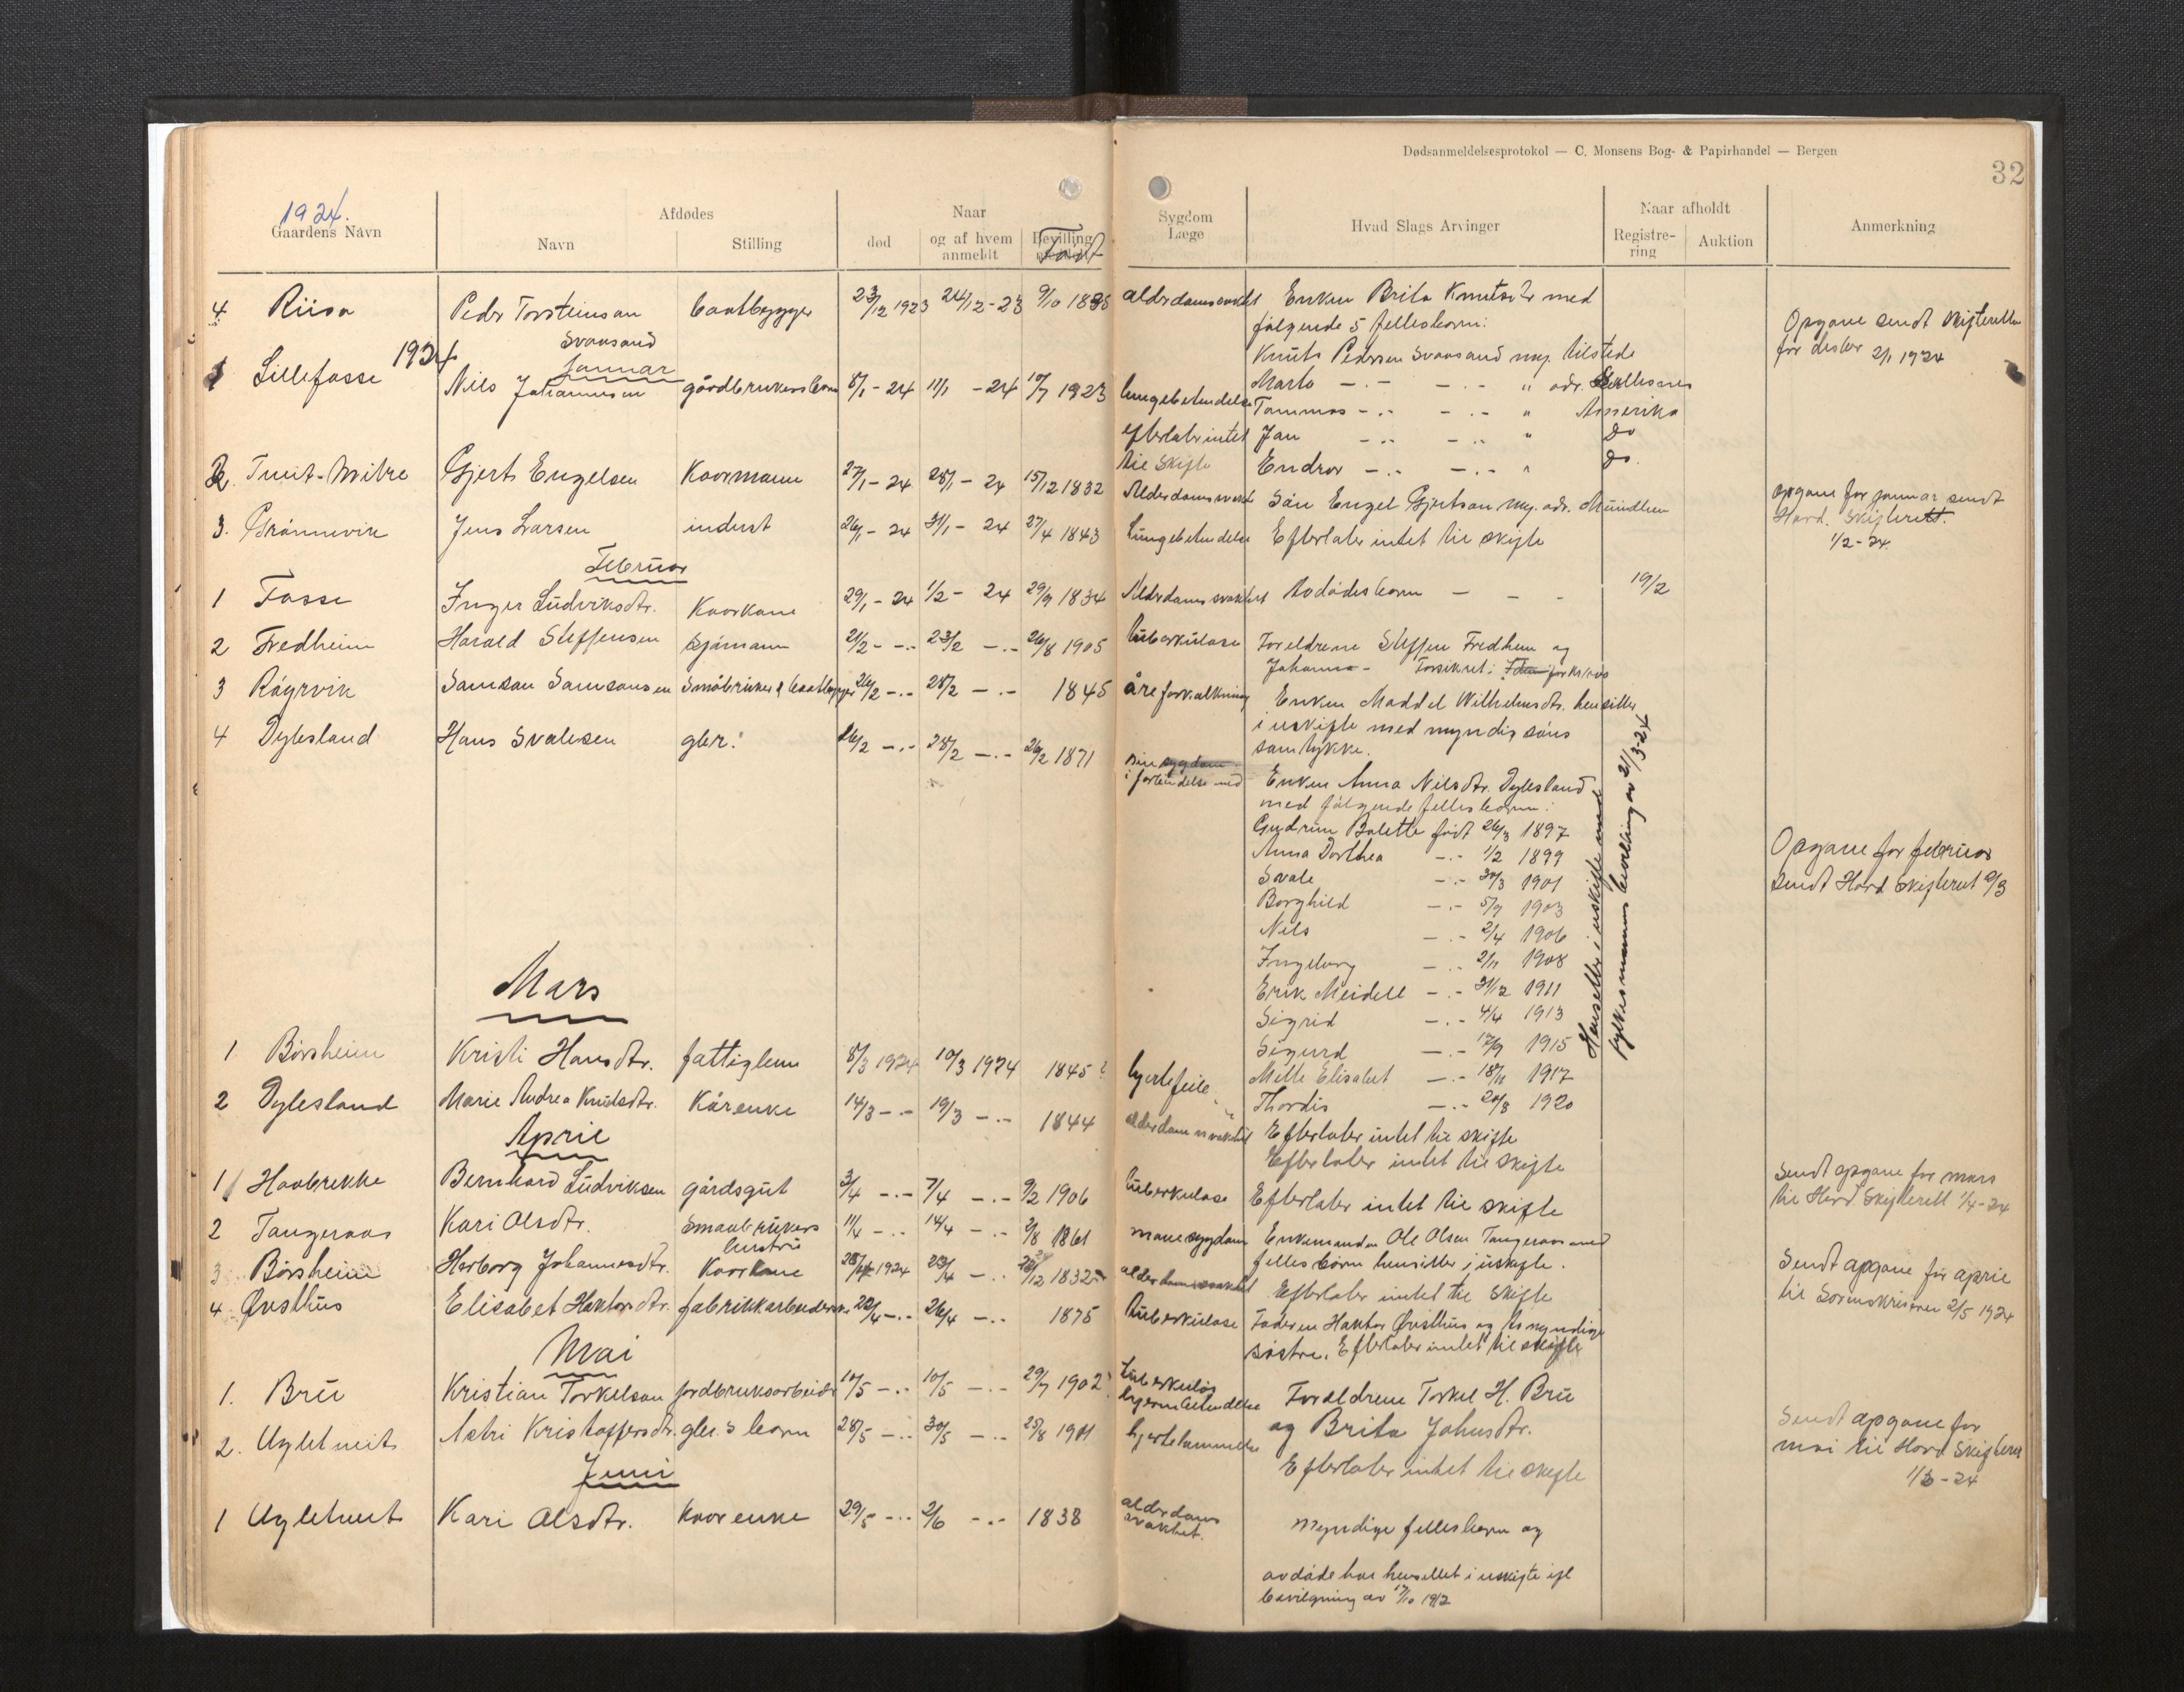 Dødsanmeldelsesprotokol — C. Monsens Bog- & Papirhandel — Bergen
32
1924.
Gaardens Navn
Afdødes
Navn
Stilling
Naar
død
og af hvem anmeldt
Bevilling
Født
Sygdom
Læge
Hvad Slags Arvinger
Naar afholdt
Registrering
Auktion
Anmerkning
4 Riisa Peder Torsteinson baatbygger 23/12 1923 24/12-23 9/10 1835 alderdomssvakhet Enken Brita Knutsdtr med
Svaasand følgende 5 fellesborn:
Knut Pedersen Svaasand myg. tilstede
Opgave sendt skifteretten
for desbr 2/1 1924
1924 Januar
1 Lillefosse Nils Johannesen gårdbrukers barn 8/1-24 11/1-24 10/7 1923 lungebetendelse
efterlater intet
til skifte
Marta -.- -.- " adr.
Tommas -.- -.- " Amerika
Jan -.- -.- " Do
Endrar -.- -.- " Do.
2. Tveit-Mitre Gjert Engelsen Kaarmann 27/1-24 28/1-24 15/12 1832 Alderdomssvakh Søn Engel Gjertson myg. adr. Mundheim
3. Grønnevik Jens Larsen inderst 26/1-24 31/1-24 27/4 1843 Lungebetendelse Efterlater intet til skifte
opgave for januar sendt
Hard. Skifterett.
1/2-24.
Februar
1 Fosse Inger Ludviksdtr. Kaarkone 29/1-24 1/2-24 29/9 1834 Alderdomssvakhet Avdødes barn - - - 19/2
2 Fredheim Harald Steffensen sjømann 21/2 -.- 23/2 -.- 26/8 1905 tuberkulose Foreldrene Steffen Fredheim og
Johanna - Forsikret i
3 Røyrvik Samson Samsonsen Småbruker & baatbygger 26/2 -.- 28/2 -.- 1845 åreforkalkning Enken Maddel Wilhelmsdtr. hensitter
i uskifte med myndig søns
samtykke.
4 Dylesland Hans Svalesen gbr. 26/2 -.- 28/2 -.- 26/2 1871
i forbindelse med
Enken Anna Nilsdtr. Dylesland
med følgende fellesborn:
Gudrun Bolette født 26/3 1897
Anna Dorthea -.- 1/2 1899
Svale -.- 30/3 1901
Borghild -.- 5/9 1903
Nils -.- 2/4 1906
Ingeborg -.- 2/11 1908
Erik Meidell -.- 31/12 1911
Sigrid -.- 4/4 1913
Sigurd -.- 17/9 1915
Mette Elisabet -.- 18/11 1917
Thordis -.- 20/8 1920
Hensitter i uskifte med
fylkesmannens bevilling av 21/3-24
Opgave for februar
sendt Hard skifterett 2/3
Mars
1 Børsheim Kristi Hansdtr. fattiglem 8/3 1924 10/3 1924 1845? hjertefeile Efterlater intet til skifte
2 Dylesland Marie Andrea Knutsdtr. Kårenke 14/3 -.- 19/3 -.- 1844 alderdomssvakhet Efterlater intet til skifte
April
1 Haabrekke Bernhard Ludviksen gårdsgut 3/4 -.- 7/4 -.- 9/2 1906 tuberkulose Efterlater intet til skifte
Sendt opgave for mars
til Hard Skifterett 1/4-24
2 Tangeraas Kari Olsdtr. Smaabrukers hustru 11/4 -.- 14/4 -.- 2/8 1861 mavesygdom Enkemanden Ole Olsen Tangeraas med
felles børn hensitter i uskifte.
3 Børsheim Herborg Johannesdtr. Kaarkone 1924 23/4 -.- 1832 alderdomssvakhet Efterlater intet til skifte
4 Øvsthus Elisabet Haktorsdtr. fabrikkarbeiderske 22/4 -.- 26/4 -.- 1875 Tuberkulose Faderen Haktor Øvsthus og myndige
søstre. Efterlater intet til skifte
Sendt opgave for april
til Sorenskriveren 2/5 1924
Mai
1. Bru Kristian Torkelson jordbruksarbeider 10/5 -.- 10/5 -.- 29/7 1902 tuberkuløs
hjernebetendelse
Foreldrene Torkel H. Bru
og Brita Johnsdtr.
2. Ugletveit Astri Kristoffersdtr. gbr.s barn 28/5 -.- 30/5 -.- 25/8 1901 hjertelammelse Efterlater intet til skifte
Sendt opgave for
mai til Hard Skifterett
1/6-24
Juni
1 Ugletveit Kari Olsdtr. Kaarenke 29/5 -.- 2/6 -.- 1838 alderdoms
svakhet.
Myndige fellesborn og
avdøde har hensittet i uskifte ifl
bevilgning av 17/10 1912